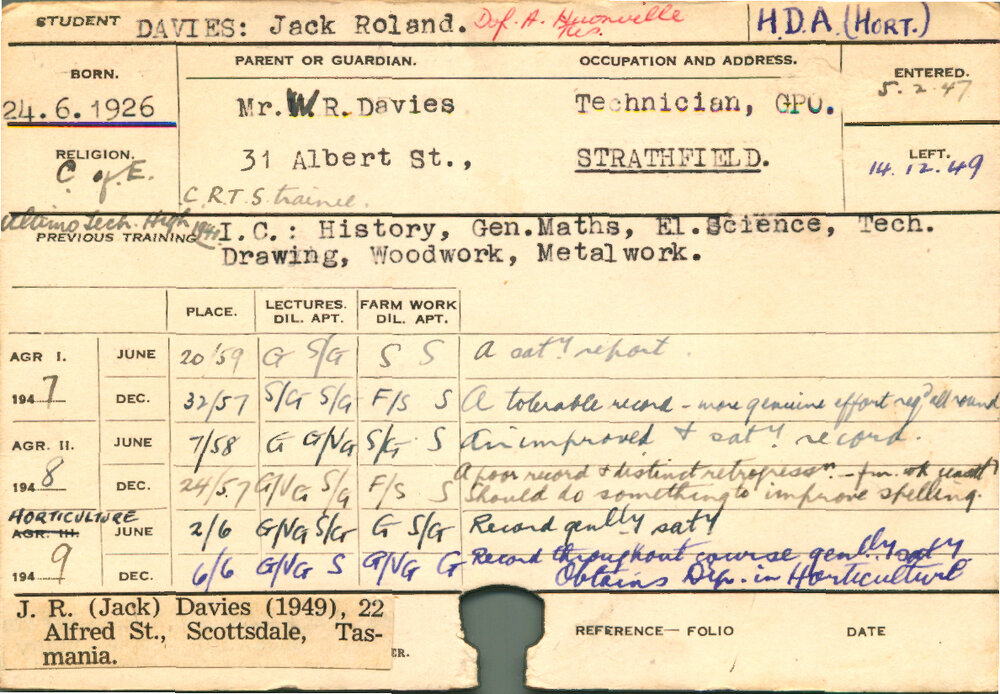 STUDENT DAVIES: Jack Roland. Dof. A. Huonville Tas. H.D.A (HORT.)
BORN. PARENT OR GUARDIAN. OCCUPATION AND ADDRESS. ENTERED.
24.6.1926 Mr. W.R.Davies Technician, GPO. 5.2.47
RELIGION. 31 Albert St., STRATHFIELD. LEFT.
C of E. 14.12.49
C.R.T.S trainee.
Ultimo Tech. High 1941
PREVIOUS TRAINING I.C.: History, Gen.Maths, El.Science, Tech.
Drawing, Woodwork, Metalwork.
PLACE. LECTURES. FARM WORK
DIL. APT. DIL. APT.
AGR I. JUNE 20/59 G S/G S S A sat'y report.
1947 DEC. 32/57 S/G S/G F/S S A tolerable record - more genuine effort req'd all round
AGR. II. JUNE 7/58 G G/VG S/G S An improved & sat'y record.
A poor record & distinct retrogress'n -
1948 DEC. 24/57 G/VG S/G F/S S Should do something to improve spelling.
HORTICULTURE
AGR. III. JUNE 2/6 G/VG S/G G S/G Record gen'lly sat'y
Record throughout course gen'lly sat'y
1949 DEC. 6/6 G/VG S G/VG G Obtains Dip. in Horticulture
J. R. (Jack) Davies (1949), 22
Alfred St., Scottsdale, Tas-
mania.
ER.
REFERENCE— FOLIO DATE